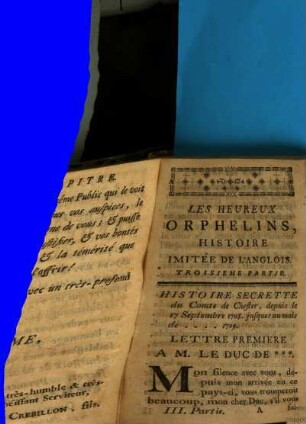 PITRE.
même Public qui de voit
vos auspices, le
de vous! & puisse
& vos bontés
& la témérité que
l'affrir!
vec un très-profond
ME,
très-humble & très-
béissant Serviteur,
CREBILLON, fils.
LES HEUREUX
ORPHELINS,
HISTOIRE
IMITÉE DE L'ANGLOIS.
TROISIEME PARTIE.
HISTOIRE SECRETTE
du Comte de Chester, depuis le
17 Septembre 1705. jusques au mois
de . . . . 1715.
LETTRE PREMIERE
A M. LE DUC DE ***.
Mon silence avec vous, de-
puis mon arrivée en ce
pays-ci, vous tromperoit
beaucoup, mon cher Duc, s'il vous
III. Partie. A